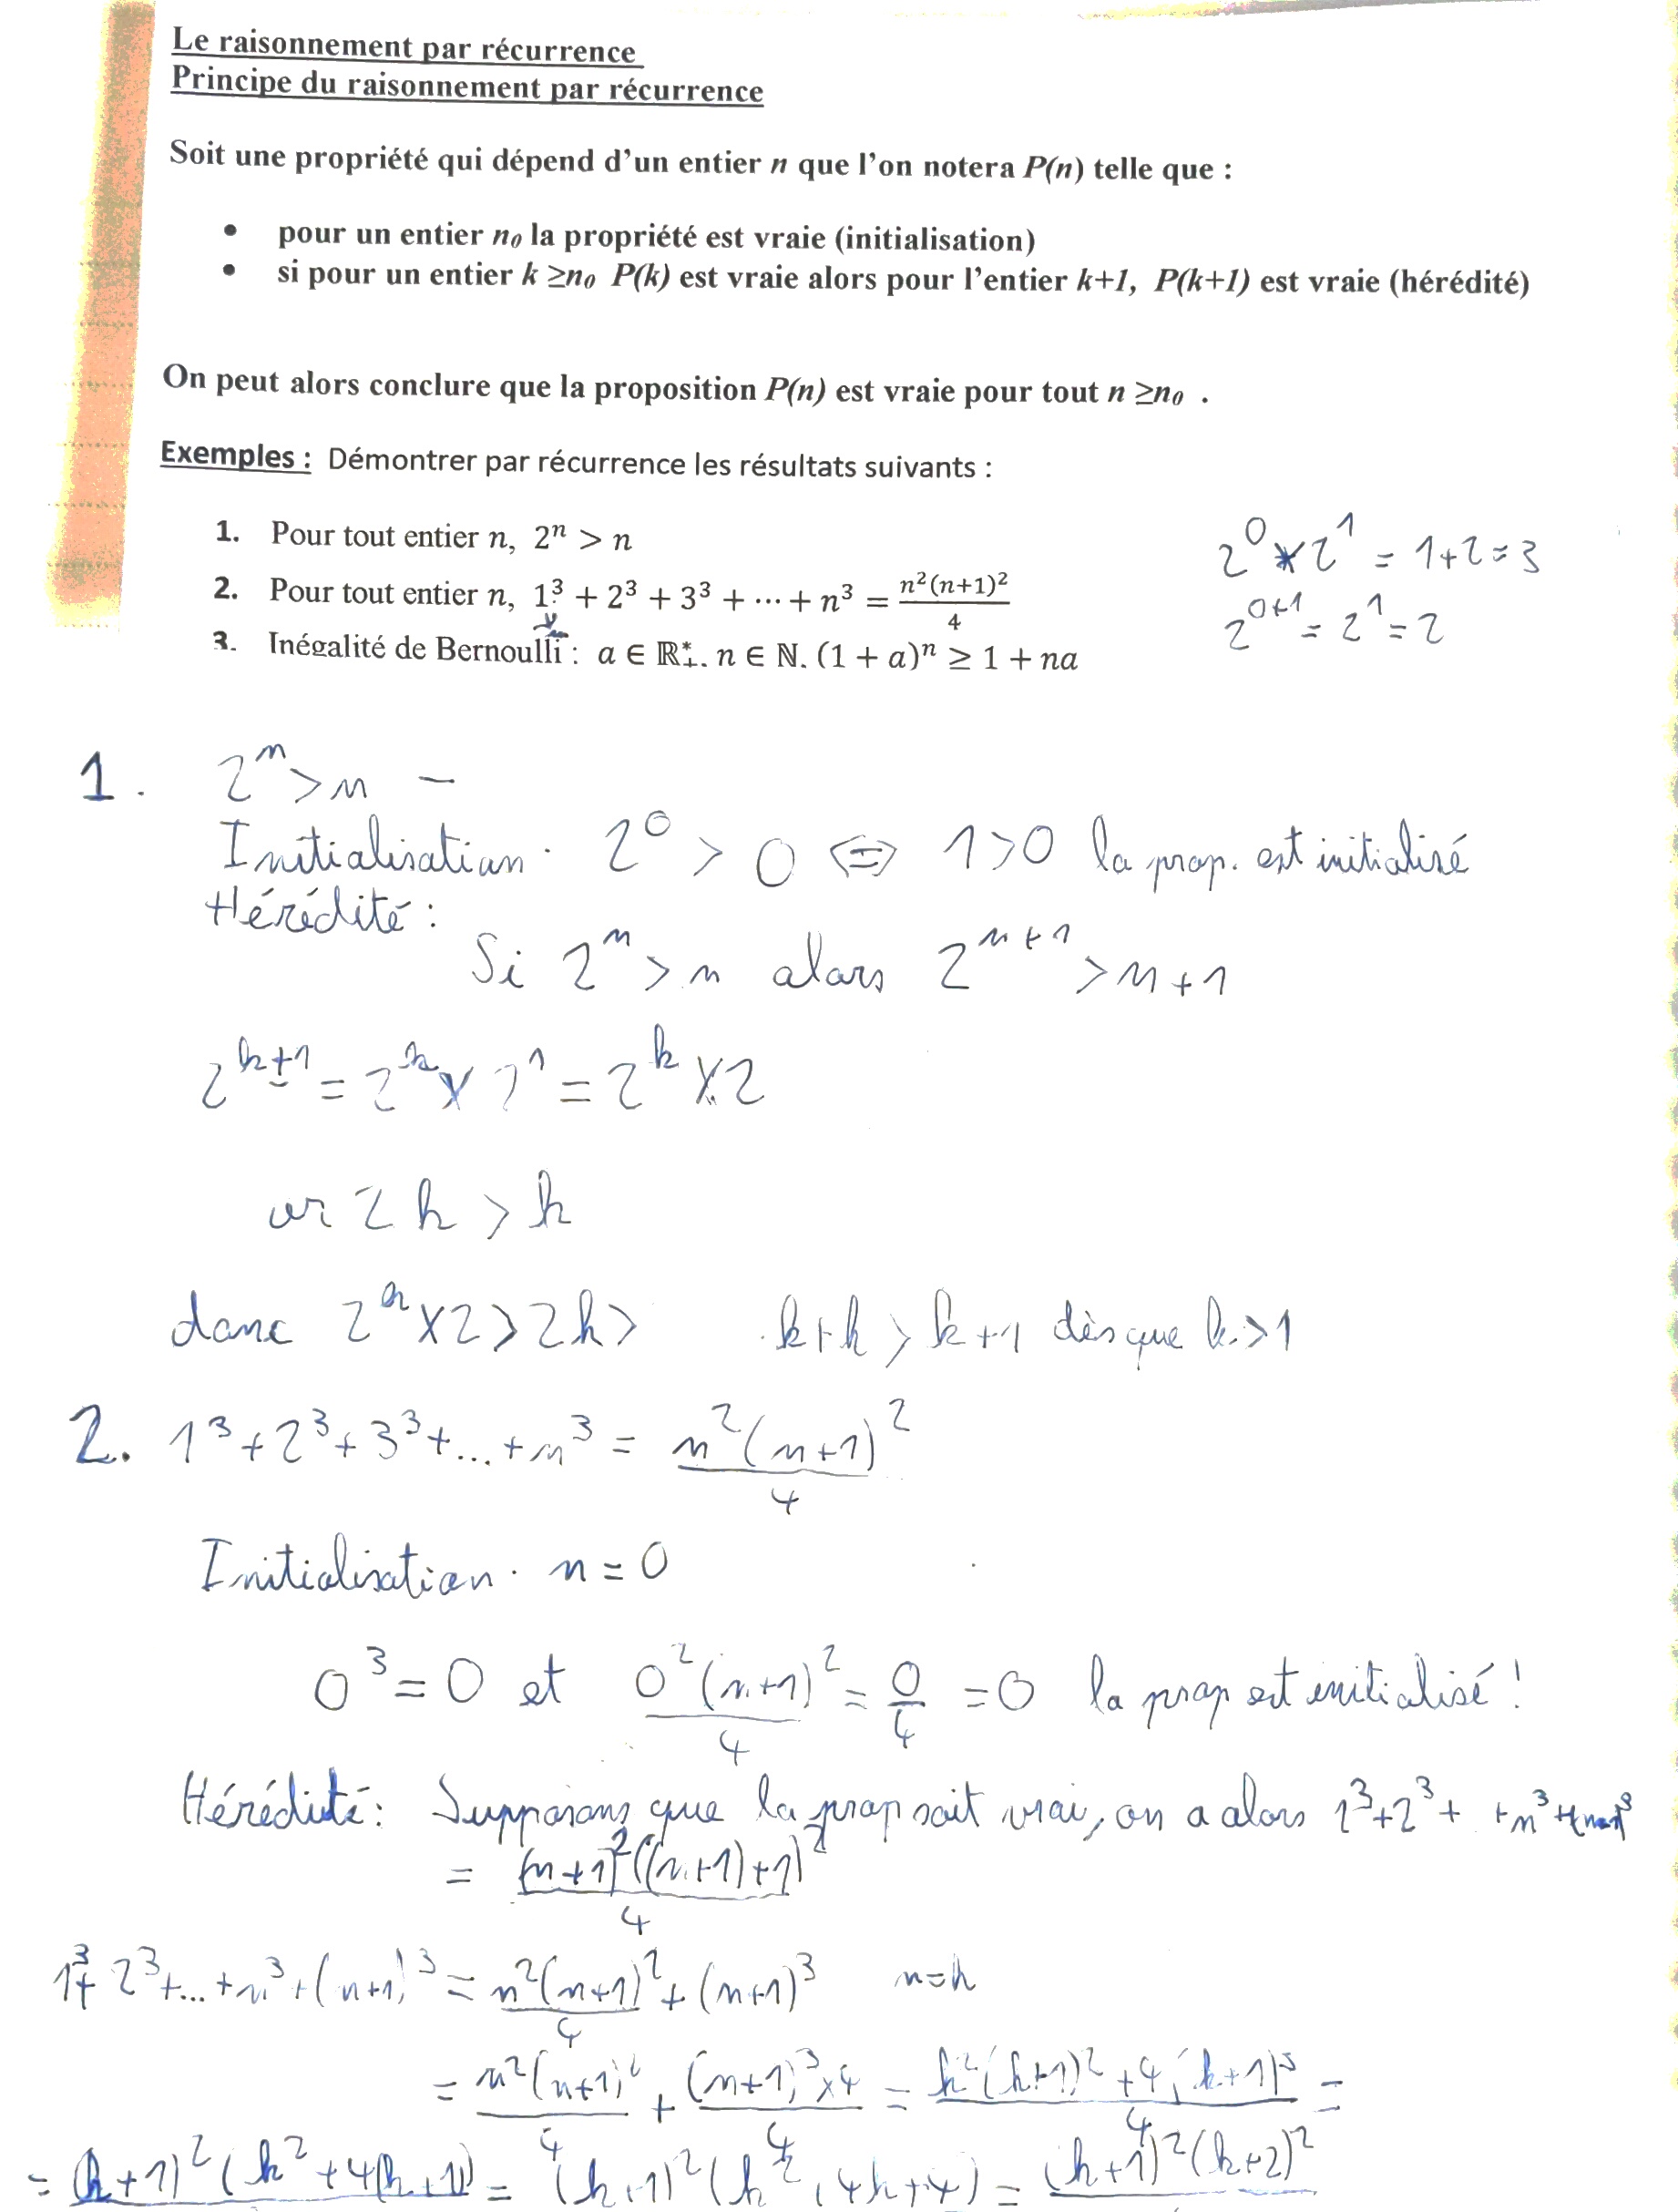 Le raisonnement par récurrence
Principe du raisonnement par récurrence
Soit une propriété qui dépend d'un entier n que l'on notera P(n) telle que :
• pour un entier n₀ la propriété est vraie (initialisation)
• si pour un entier k ≥n₀ P(k) est vraie alors pour l'entier k+1, P(k+1) est vraie (hérédité)
On peut alors conclure que la proposition P(n) est vraie pour tout n ≥n₀ .
Exemples : Démontrer par récurrence les résultats suivants :
1. Pour tout entier n, 2ⁿ > n
2. Pour tout entier n, 1³ + 2³ + 3³ + ⋯ + n³ = n²(n+1)²/4
3. Inégalité de Bernoulli : a ∈ ℝ₊*, n ∈ ℕ, (1 + a)ⁿ ≥ 1 + na
2⁰ × 2¹ = 1+2=3
2⁰⁺¹ = 2¹ = 2
1. 2ⁿ > n –
Initialisation. 2⁰ > 0 ⇔ 1>0 la prop. est initialisé
Hérédité :
Si 2ⁿ > n alors 2ⁿ⁺¹ > n+1
2ᵏ⁺¹ = 2ᵏ × 2¹ = 2ᵏ × 2
or 2k > k
donc 2ᵏ×2 > 2k > k+k > k+1 dès que k>1
2. 1³+2³+3³+...+n³ = n²(n+1)²/4
Initialisation. n=0
0³=0 et 0²(n+1)²/4 = 0/4 =0 la prop est initialisé !
Hérédité : Supposons que la prop soit vrai, on a alors 1³+2³+ +n³+(n+1)³
= (n+1)²((n+1)+1)²/4
1³+2³+...+n³+(n+1)³ = n²(n+1)²/4 + (n+1)³ n=k
= n²(n+1)²/4 + (n+1)³×4/4 = k²(k+1)²+4(k+1)³/4 =
= (k+1)²(k²+4(k+1)) = (k+1)²(k²+4k+4) = (k+1)²(k+2)²